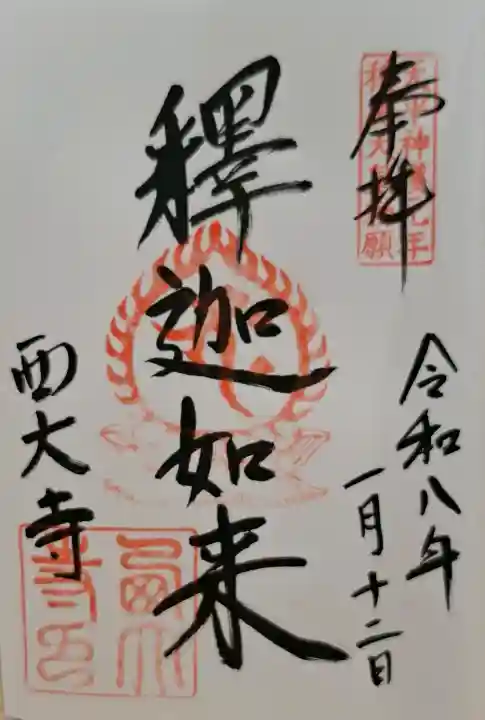 奉拝
令和八年
一月十二日
釋迦如来
西大寺